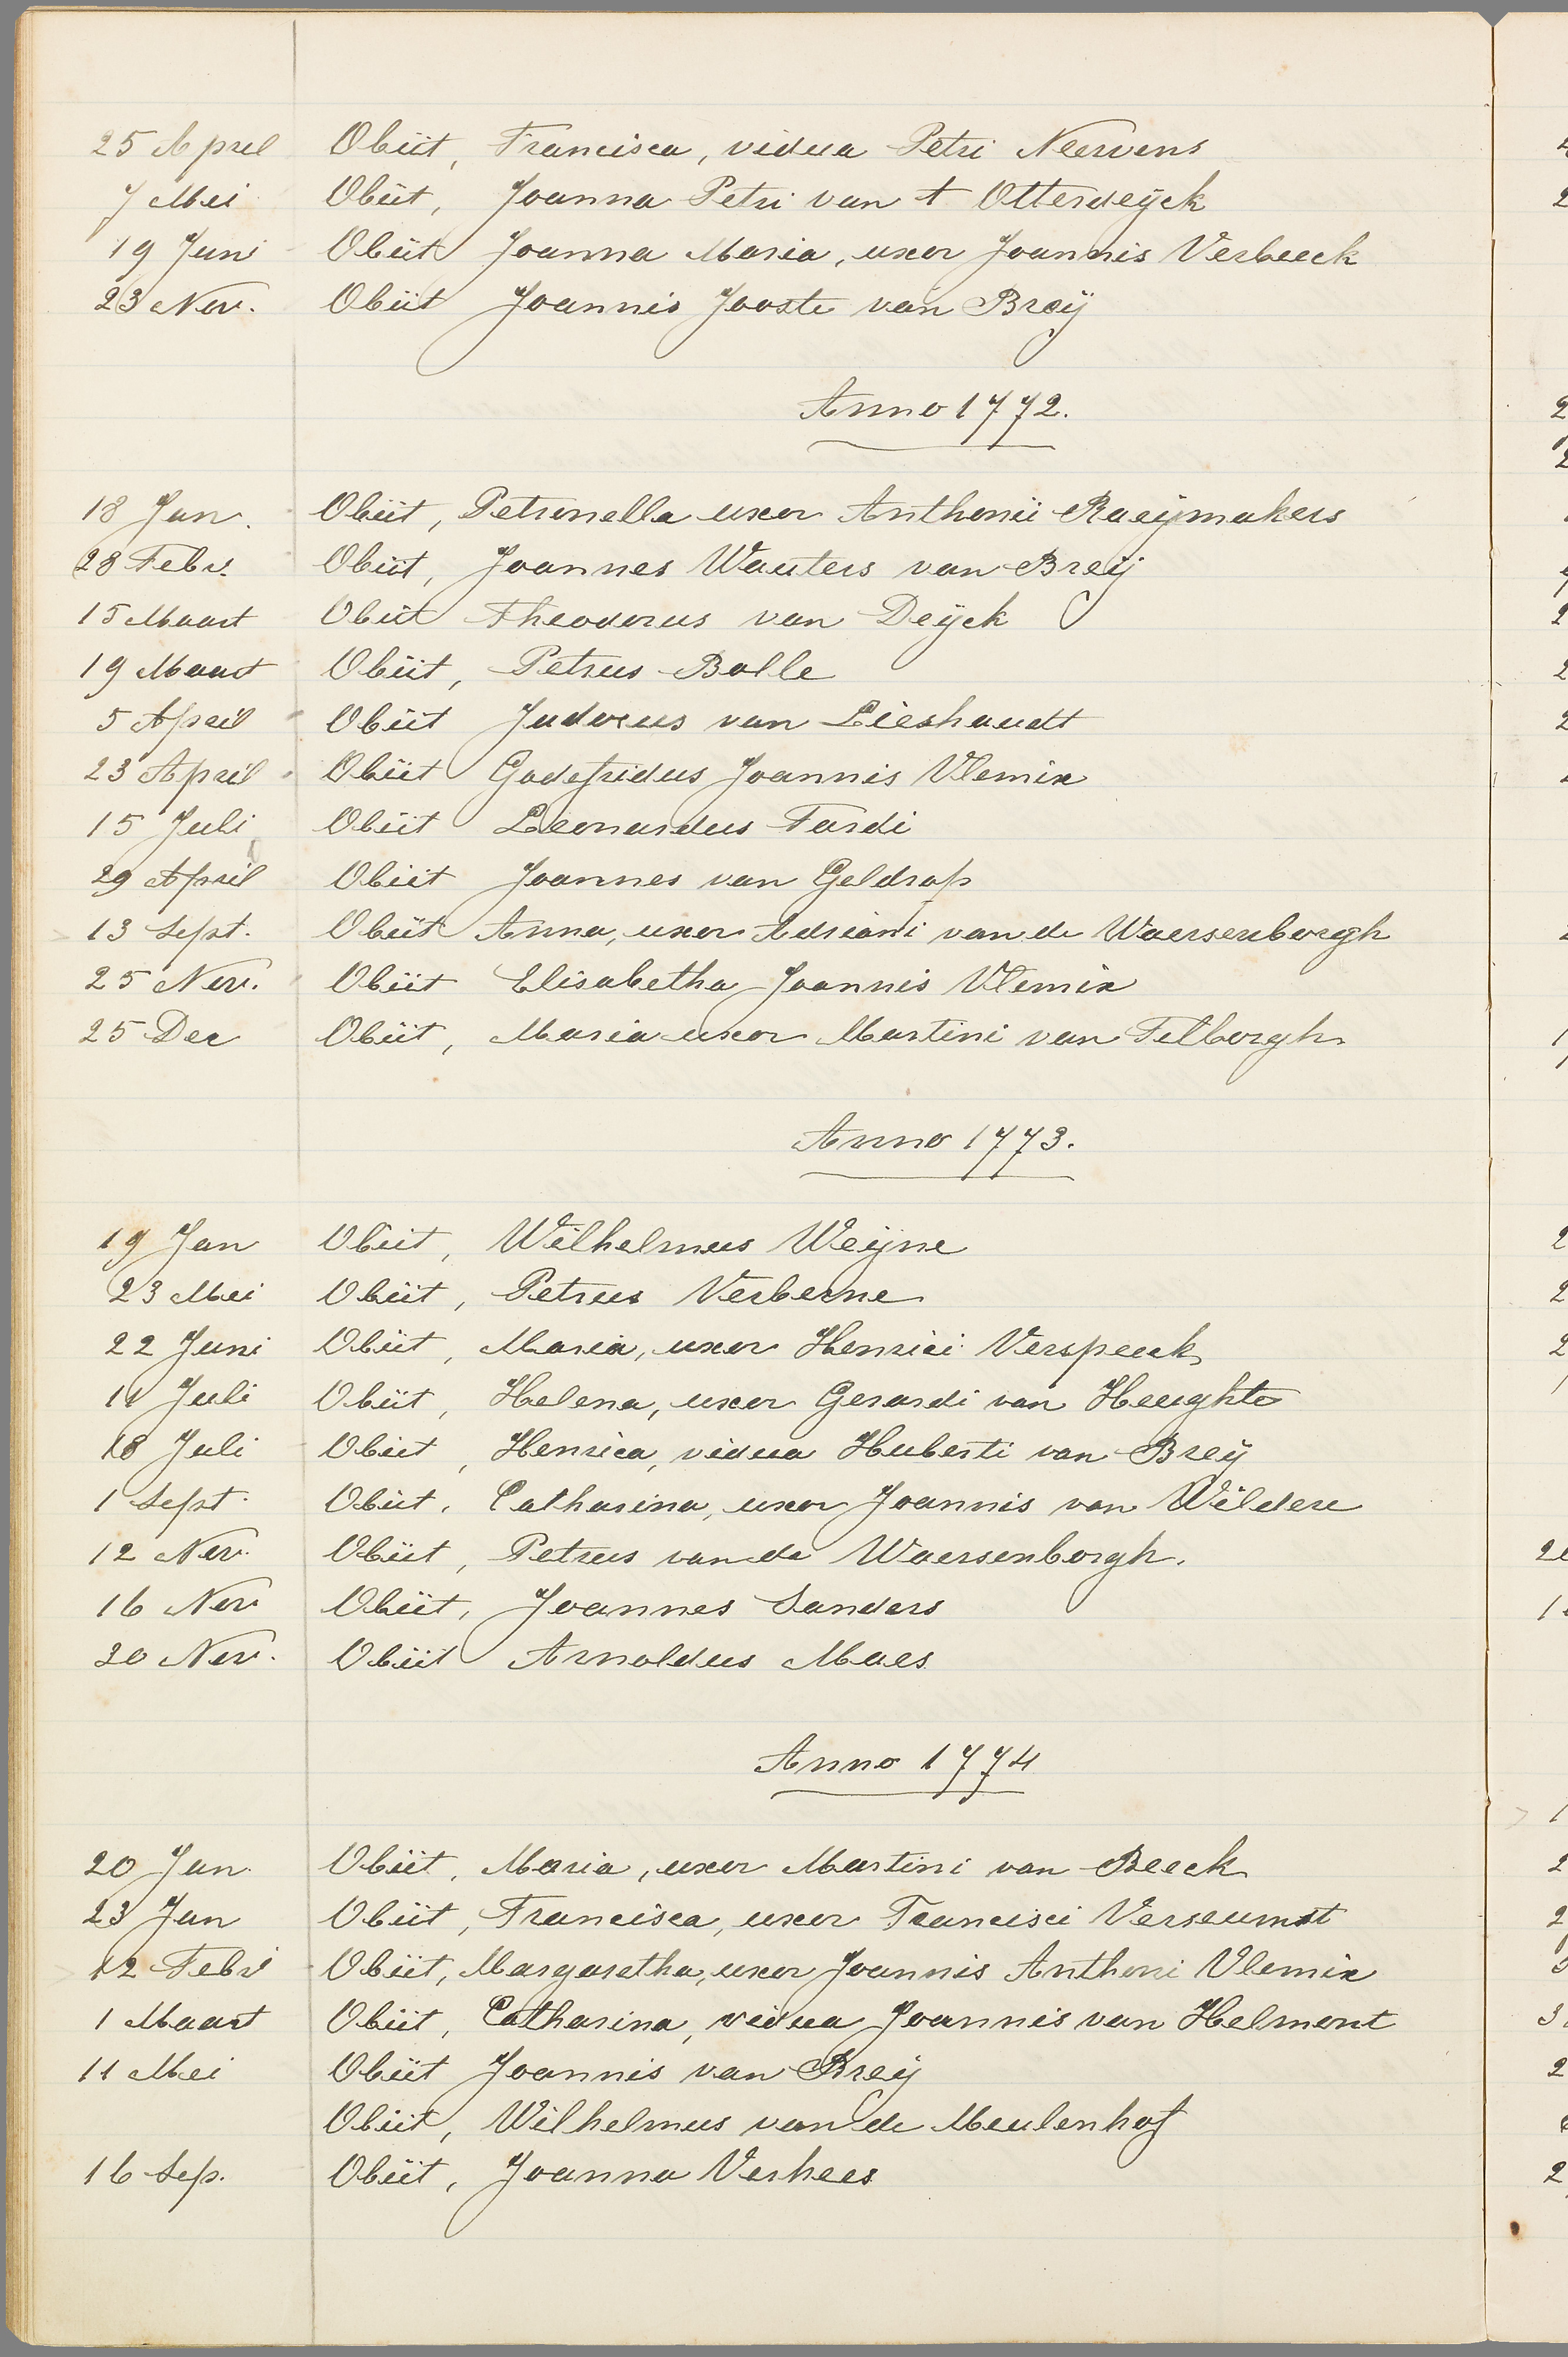 25 April Obiit, Francisca, vidua Petri Neervens
7 Mei Obiit, Joanna Petri van t Otterdeijck
19 Juni Obiit Joanna Maria, uxor Joannis Verbeeck
23 Nov. Obiit Joannis Jooste van Breij
Anno 1772.
18 Jan. Obiit, Petronella uxor Anthonii Raeijmakers
28 Febr. Obiit, Joannes Wauters van Breij
15 Maart Obiit Theodorus van Deijck
19 Maart Obiit, Petrus Bolle
5 April Obiit Judocus van Lieshaudt
23 April Obiit Godefridus Joannis Vlemix
15 Juli Obiit Leonardus Fardi
29 April Obiit Joannes van Geldrop
13 Sept. Obiit Anna, uxor Adriani van de Waersenborgh
25 Nov. Obiit Elisabetha Joannis Vlemix
25 Dec Obiit, Maria uxor Martini van Tilborgh
Anno 1773.
19 Jan Obiit, Wilhelmus Weijne
23 Mei Obiit, Petrus Verberne
22 Juni Obiit, Maria, uxor Henrici Verspeek
11 Juli Obiit, Helena, uxor Gerardi van Heughte
18 Juli Obiit, Henrica, vidua Huberti van Breij
1 Sept. Obiit, Catharina, uxor Joannis van Wildere
12 Nov. Obiit, Petrus van de Waersenborgh.
16 Nov Obiit, Joannes Sanders
30 Nov. Obiit Arnoldus Maes
Anno 1774
20 Jan. Obiit, Maria, uxor Martini van Beeck
23 Jan Obiit, Francisca, uxor Francisci
12 Febr Obiit, Margaretha, uxor Joannis Anthoni Vlemix
1 Maart Obiit, Catharina, vidua Joannis van Helmont
11 Mei Obiit Joannis van Breij
Obiit, Wilhelmus van de Meulenhof
16 Sep. Obiit, Joanna Verhees